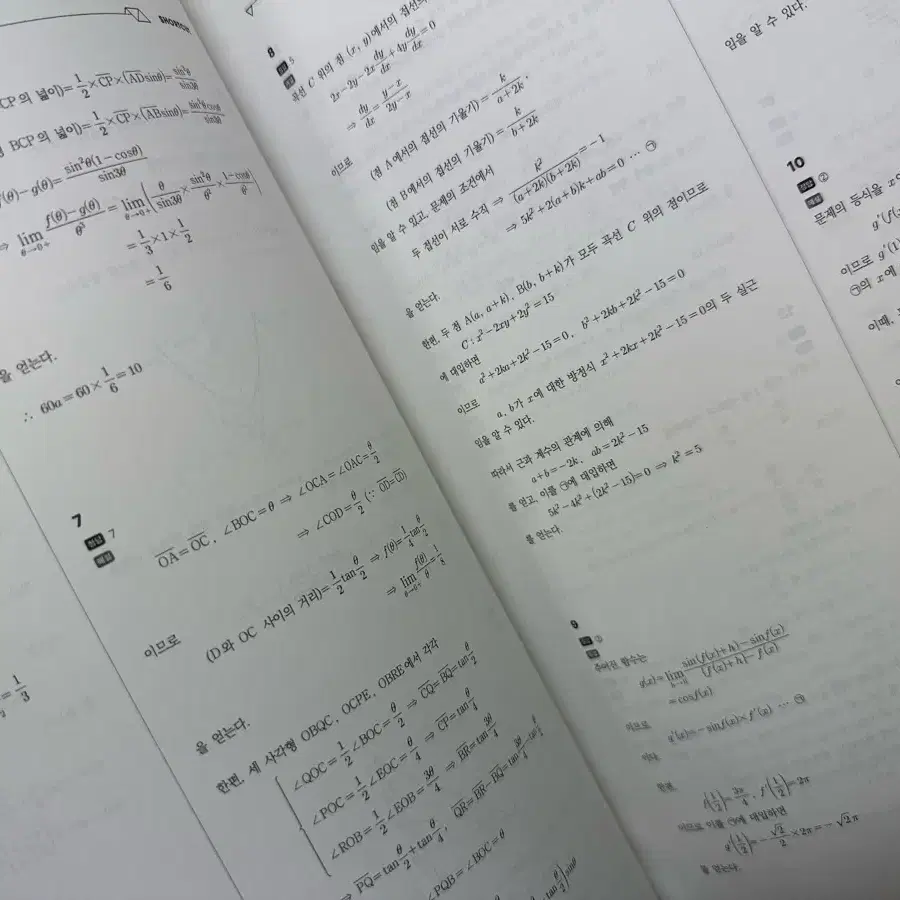 SHORTCUT
CP의 넓이)=1/2×CP×(ADsinθ)=sin²θ/sin3θ
BCP의 넓이)=1/2×CP×(ABsinθ)=sin²θcosθ/sin3θ
f(θ)-g(θ)=sin²θ(1-cosθ)/sin3θ
⇒ lim θ→0+ f(θ)-g(θ)/θ³=lim θ→0+(θ/sin3θ×sin²θ/θ²×1-cosθ/θ²)
=1/3×1×1/2
=1/6
을 얻는다.
∴ 60a=60×1/6=10
=1/3
7
정답 7
해설
OA=OC, ∠BOC=θ ⇒ ∠OCA=∠OAC=θ/2
⇒ ∠COD=θ/2 (∵ OD=CD)
이므로
(D와 OC 사이의 거리)=1/2tanθ/2 ⇒ f(θ)=1/4tanθ/2
⇒ lim θ→0+ f(θ)/θ=1/8
을 얻는다.
한편, 세 사각형 OBQC, OCPE, OBRE에서 각각
∠QOC=1/2∠BOC=θ/2 ⇒ CQ=BQ=tanθ/2
∠POC=1/2∠EOC=θ/4 ⇒ CP=tanθ/4
∠ROB=1/2∠EOB=3θ/4 ⇒ BR=tan3θ/4
⇒ PQ=tanθ/2+tanθ/4, QR=BR-BQ=tan3θ/4-tanθ/2
∠PQB=∠BOC=θ
8
정답 5
해설
곡선 C 위의 점 (x, y)에서의 접선의
2x-2y-2xdy/dx+4ydy/dx=0
⇒ dy/dx=y-x/2y-x
이므로
(점 A에서의 접선의 기울기)=k/a+2k,
(점 B에서의 접선의 기울기)=k/b+2k
임을 알 수 있고, 문제의 조건에서
두 접선이 서로 수직 ⇒ k²/(a+2k)(b+2k)=-1
⇒ 5k²+2(a+b)k+ab=0 … ㉠
을 얻는다.
한편, 두 점 A(a, a+k), B(b, b+k)가 모두 곡선 C 위의 점이므로
C : x²-2xy+2y²=15
에 대입하면
a²+2ka+2k²-15=0, b²+2kb+2k²-15=0
이므로
a, b가 x에 대한 방정식 x²+2kx+2k²-15=0의 두 실근
임을 알 수 있다.
따라서 근과 계수의 관계에 의해
a+b=-2k, ab=2k²-15
를 얻고, 이를 ㉠에 대입하면
5k²-4k²+(2k²-15)=0 ⇒ k²=5
를 얻는다.
9
정답
해설
주어진 함수는
g(x)=lim h→0 sin(f(x)+h)-sinf(x)/(f(x)+h)-f(x)
=cosf(x)
이므로
g'(x)=-sinf(x)×f'(x) … ㉠
이다.
한편
f(1/2)=3π/4, f'(1/2)=2π
이므로 이를 ㉠에 대입하면
g'(1/2)=-√2/2×2π=-√2π
를 얻는다.
임을 알 수 있다.
10
정답 ②
해설
문제의 등식을 x에
g'(f(x
이므로 g'(1)
㉠의 x에
이때,